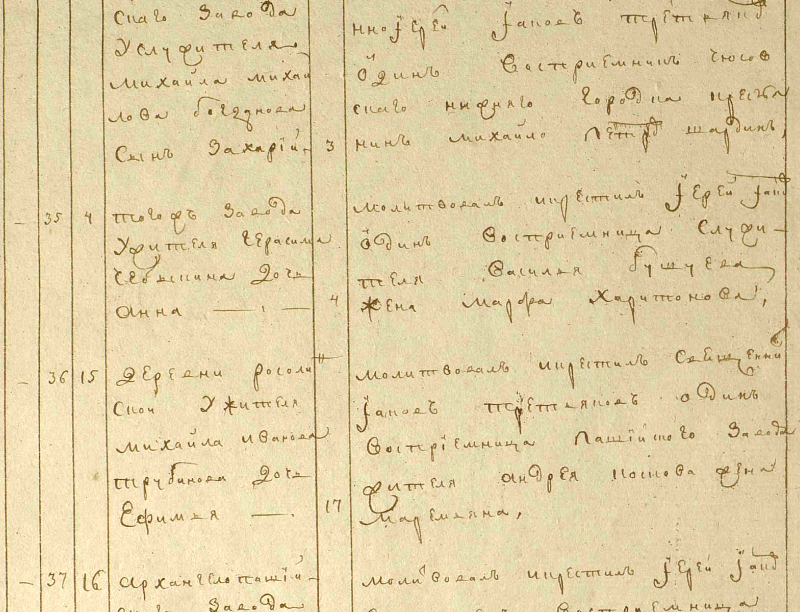 скаго завода
Услужителя
Михайла Михай
лова богданова
Сынъ Захарiй
ннъ Iерей Iаковъ третьяко
Одинъ восприемникъ чюсов
скаго нижняго городка кресътя
нинъ михайло Петро шардинъ,
3
35 4 тогожъ завода
Ужителя Герасима
дочь
анна
молитвовалъ икрестилъ Iерей Iако
Одинъ восприемница служи-
теля василья бушуева
4 жена Марфа харитонова,
36 15 деревни росоли
ской Ужителя
михайла иванова
трубинова дочь
Ефимья
молитвовалъ икрестилъ Священни
Iаковъ третьяковъ одинъ
восприемница пашiйского завода
жителя андрея попова жена
17 Маремьяна,
37 16 архангелопашiй-
скаго завода
молитвовалъ икрестилъ Iерей Iако
восприемница